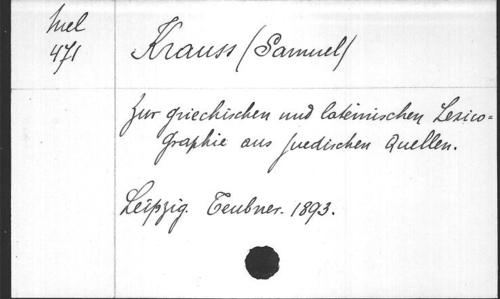 Mel
471
Krauss (Samuel)
Zur griechischen und lateinischen Lexico-
graphie aus juedischen Quellen.
Leipzig. Teubner. 1893.